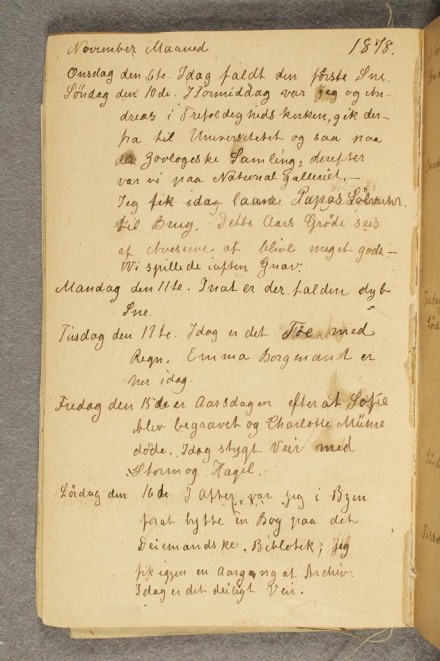 November Maaned 1878.
Onsdag den 6te. Idag faldt den første Sne.
Søndag den 10de. I Formiddag var jeg og An-
dreas i Trefoldighedskirken, gik der-
fra til Universitetet og saa paa
den Zoologeske Samling; derefter
var vi paa Nationalgalleriet.—
Jeg fik idag laane Papas
til Brug. Dette Aars Grøde seis
af Aviserne at blive meget god.—
Vi spillede iaften Gnav.
Mandag den 11te. Inat er der falden dyb
Sne.
Tirsdag den 12te. Idag er det Tøe med
Regn. Emma Borgmand er
her idag.
Fredag den 15de er Aarsdagen efter at Sofie
blev begravet og Charlotte
døde. Idag stygt Veir med
Storm og Hagel.
Lørdag den 16de I Aften var jeg i Byen
forat bytte en Bog paa det
Deiemandske. Bibliotek; Jeg
fik igjen en Aargang af Archiv.
Idag er det deiligt Veir.